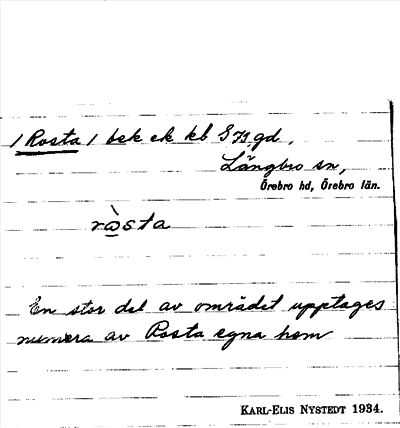 / Rosta / bek ek kb S 71 gd,
Längbro sn,
Örebro hd, Örebro län.
ròsta
En stor del av området upptages
numera av Rosta egna hem
KARL-ELIS NYSTEDT 1934.